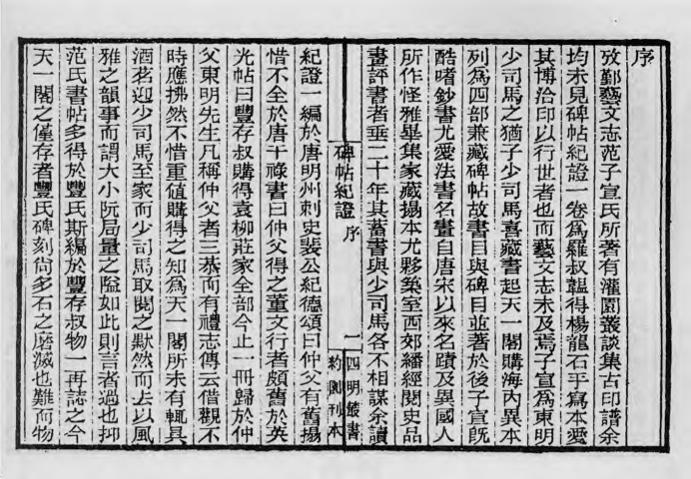 序
攷鄞藝文志范子宣氏所著有灌園叢談集古印譜余
均未見碑帖紀證一卷爲羅叔韞得楊龍石手寫本愛
其博洽印以行世者也而藝文志未及焉子宣爲東明
少司馬之猶子少司馬喜藏書起天一閣購海內異本
列爲四部兼藏碑帖故書目與碑目並著於後子宣旣
酷嗜鈔書尤愛法書名畫自唐宋以來名蹟及異國人
所作怪雅畢集家藏搨本尤夥築室西郊繙經閱史品
畫評書者垂二十年其蓄書與少司馬各不相謀余讀
碑帖紀證 序 一 四明叢書
約園刊本
紀證一編於唐明州刺史裴公紀德頌曰仲父有舊搨
惜不全於唐干祿書曰仲父得之董文行者頗舊於英
光帖曰豐存叔購得袁柳莊家全部今止一冊歸於仲
父東明先生凡稱仲父者三恭而有禮志傳云借觀不
時應拂然不惜重値購得之知爲天一閣所未有輒具
酒茗迎少司馬至家而少司馬取閱之默然而去以風
雅之韻事而謂大小阮局量之隘如此則言者過也抑
范氏書帖多得於豐氏斯編於豐存叔物一再誌之今
天一閣之僅存者豐氏碑刻尙多石之磨滅也難而物